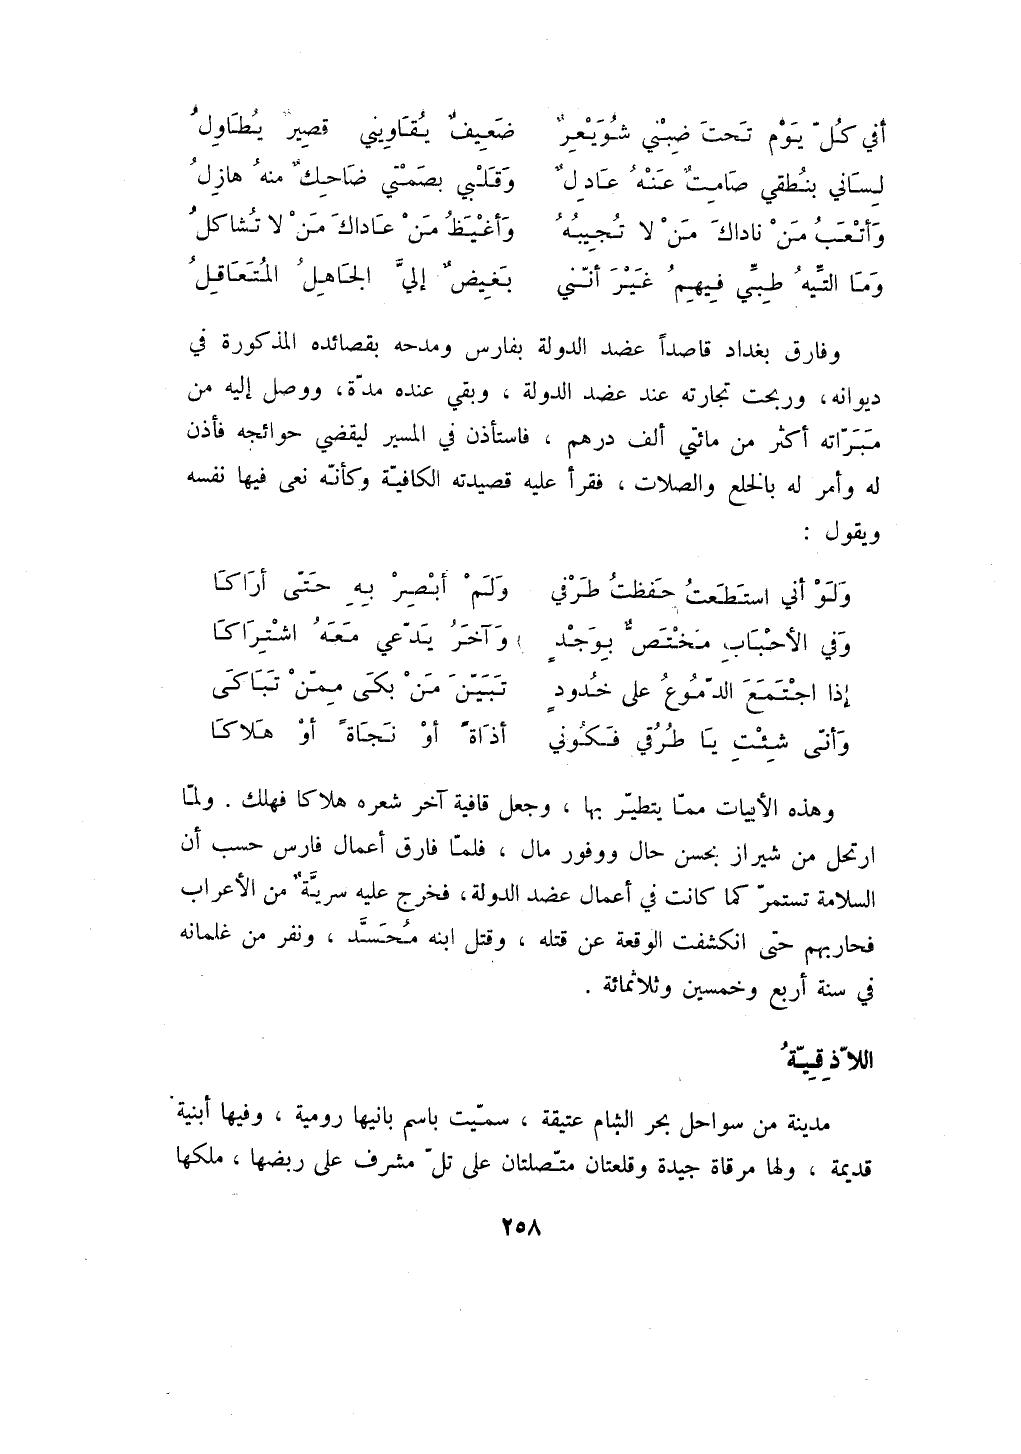 أفي كُلّ يَوْمٍ تَحتَ ضِبْني شُوَيْعِرٌ ضَعِيفٌ يُقَاوِيني قصِيرٌ يُطَاوِلُ
لِسَاني بنُطقي صَامِتٌ عَنْهُ عَادِلٌ وَقَلْبي بصَمْتي ضَاحِكٌ منهُ هازِلُ
وَأتْعَبُ مَنْ ناداكَ مَنْ لا تُجِيبُهُ وَأغْيَظُ مَنْ عاداكَ مَنْ لا تُشاكلُ
وَمَا التِّيهُ طِبِّي فِيهِمُ غَيْرَ أنّني بَغِيضٌ إليَّ الجَاهِلُ المُتَعَاقِلُ
وفارق بغداد قاصداً عضد الدولة بفارس ومدحه بقصائده المذكورة في
ديوانه، وربحت تجارته عند عضد الدولة ، وبقي عنده مدّة، ووصل إليه من
مَبَرّاته أكثر من مائتي ألف درهم ، فاستأذن في المسير ليقضي حوائجه فأذن
له وأمر له بالخلع والصلات ، فقرأ عليه قصيدته الكافيّة وكأنّه نعى فيها نفسه
ويقول :
وَلَوْ أني استَطَعتُ حَفظتُ طَرْفي وَلَمْ أبْصِرْ بِهِ حَتّى أرَاكَا
وَفي الأحْبَابِ مَخْتَصٌّ بِوَجْدٍ وَآخَرُ يَدّعي مَعَهُ اشْتِرَاكَا
إذا اجْتَمَعَ الدّمُوعُ على خُدودٍ تَبَيّنَ مَنْ بكَى مِمّنْ تَبَاكَى
وَأنّى شِئْتِ يَا طُرُقي فَكُوني أذَاةً أوْ نَجَاةً أوْ هَلاكَا
وهذه الأبيات ممّا يتطيّر بها ، وجعل قافية آخر شعره هلاكا فهلك . ولمّا
ارتحل من شيراز بحسن حال ووفور مال ، فلمّا فارق أعمال فارس حسب أن
السلامة تستمرّ كما كانت في أعمال عضد الدولة، فخرج عليه سريَّةٌ من الأعراب
فحاربهم حتّى انكشفت الوقعة عن قتله ، وقتل ابنه مُحَسَّد ، ونفر من غلمانه
في سنة أربع وخمسين وثلاثمائة .
اللاّذِقِيّةُ
مدينة من سواحل بحر الشام عتيقة ، سمّيت باسم بانيها رومية ، وفيها أبنية
قديمة ، ولها مرقاة جيدة وقلعتان متّصلتان على تلّ مشرف على ربضها ، ملكها
٢٥٨